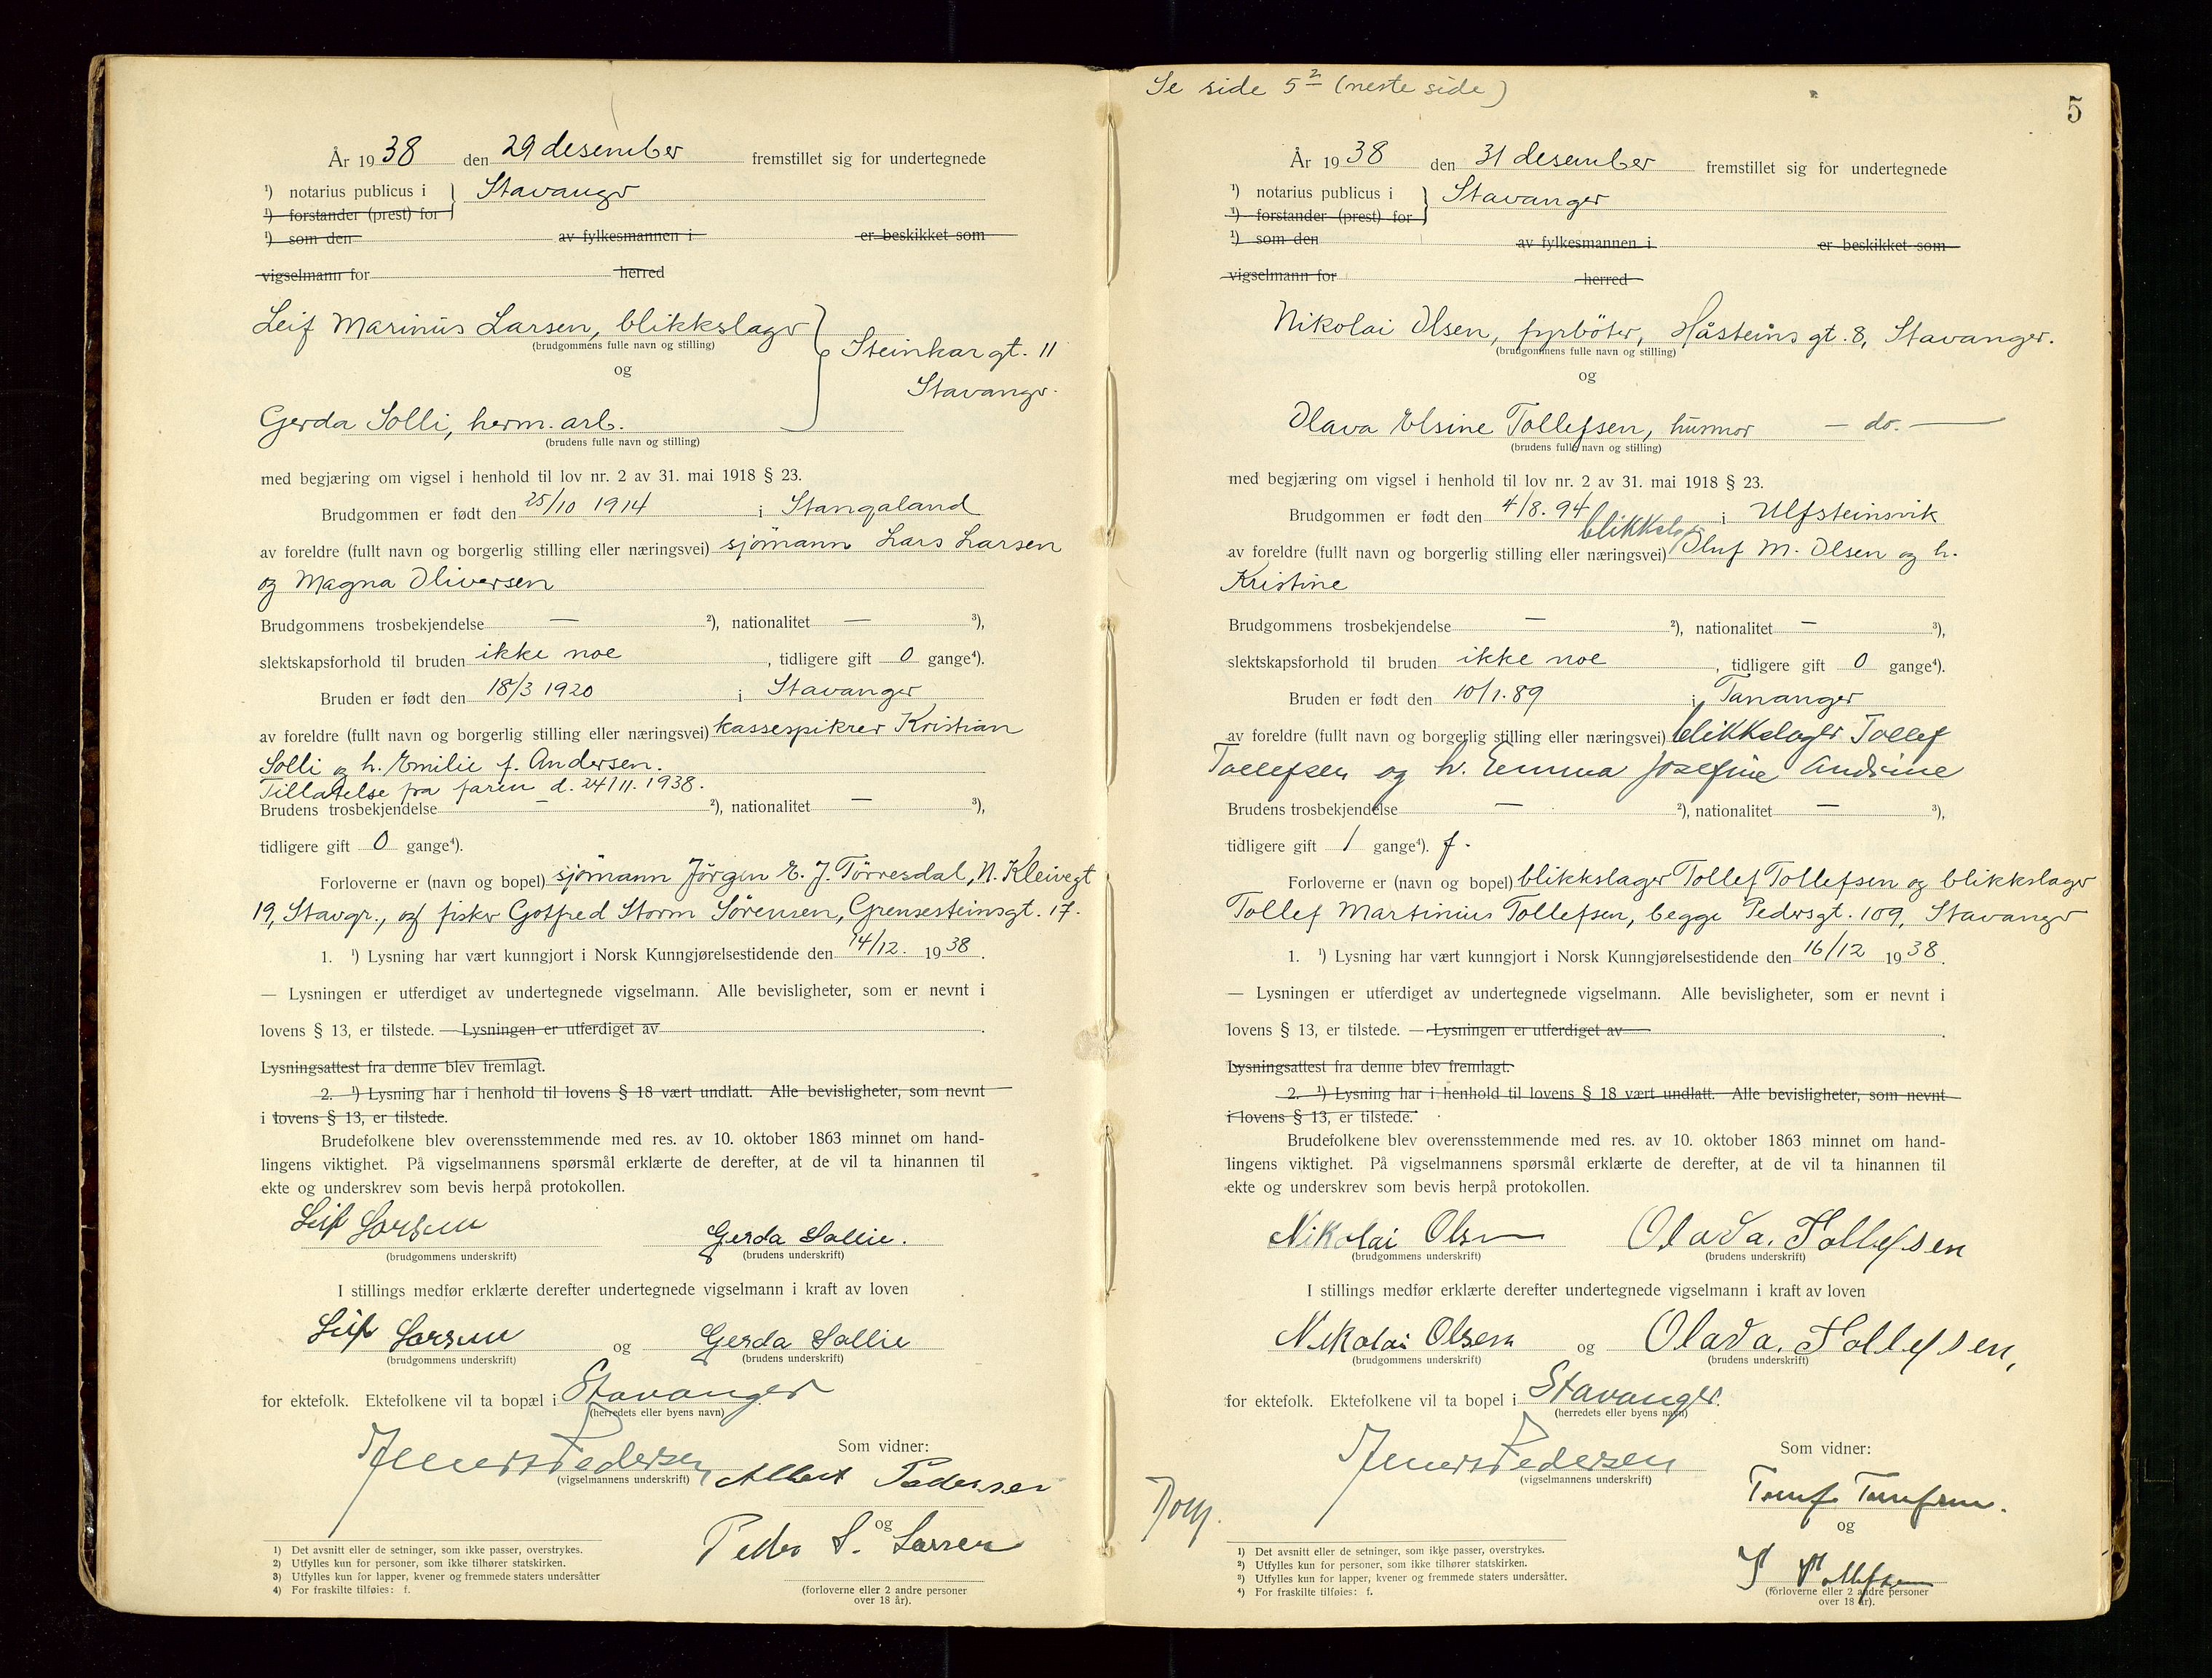 År 1938 den 29 desember fremstillet sig for undertegnede
¹) notarius publicus i } Stavanger
¹) forstander (prest) for
¹) som den av fylkesmannen i er beskikket som
vigselmann for herred
Leif Marinus Larsen, blikkslager
(brudgommens fulle navn og stilling)
Steinkargt. 11
og
Stavanger.
Gerda Solli, herm. arb.
(brudens fulle navn og stilling)
med begjæring om vigsel i henhold til lov nr. 2 av 31. mai 1918 § 23.
Brudgommen er født den 25/10 1914 i Stangaland
av foreldre (fullt navn og borgerlig stilling eller næringsvei) sjömann Lars Larsen
og Magna Oliversen
Brudgommens trosbekjendelse — ²), nationalitet — ³),
slektskapsforhold til bruden ikke noe, tidligere gift 0 gange⁴).
Bruden er født den 18/3 1920 i Stavanger
av foreldre (fullt navn og borgerlig stilling eller næringsvei) kassespikrer Kristian
Solli og h. Emilie f. Andersen.
Tillatelse fra faren d. 24/11. 1938.
Brudens trosbekjendelse — ²), nationalitet — ³),
tidligere gift 0 gange⁴).
Forloverne er (navn og bopel) sjömann Jørgen E. J. Tørresdal, N. Kleivegt
19, Stavgr., og fisker Gotfred Storm Sørensen, Grensesteinsgt. 17.
1. ¹) Lysning har vært kunngjort i Norsk Kunngjørelsestidende den 14/12. 1938.
— Lysningen er utferdiget av undertegnede vigselmann. Alle bevisligheter, som er nevnt i
lovens § 13, er tilstede. — Lysningen er utferdiget av .
Lysningsattest fra denne blev fremlagt.
2. ¹) Lysning har i henhold til lovens § 18 vært undlatt. Alle bevisligheter, som nevnt
i lovens § 13, er tilstede.
Brudefolkene blev overensstemmende med res. av 10. oktober 1863 minnet om hand-
lingens viktighet. På vigselmannens spørsmål erklærte de derefter, at de vil ta hinannen til
ekte og underskrev som bevis herpå protokollen.
Leif Larsen Gerda Sollie.
(brudgommens underskrift) (brudens underskrift)
I stillings medfør erklærte derefter undertegnede vigselmann i kraft av loven
Leif Larsen og Gerda Sollie
(brudgommens underskrift) (brudens underskrift)
for ektefolk. Ektefolkene vil ta bopæl i Stavanger
(herredets eller byens navn)
Som vidner:
Pedersen
(vigselmannens underskrift)
Albert Pedersen
og
Peder S. Larsen
(forloverne eller 2 andre personer
over 18 år).
1) Det avsnitt eller de setninger, som ikke passer, overstrykes.
2) Utfylles kun for personer, som ikke tilhører statskirken.
3) Utfylles kun for lapper, kvener og fremmede staters undersåtter
4) For fraskilte tilføies: f.
Se side 5² (neste side)
5
År 1938 den 31 desember fremstillet sig for undertegnede
¹) notarius publicus i } Stavanger
¹) forstander (prest) for
¹) som den av fylkesmannen i er beskikket som
vigselmann for herred
Nikolai Olsen, fyrböter, Håsteins gt. 8, Stavanger.
(brudgommens fulle navn og stilling)
og
Olava Elsine Tollefsen, husmor — do. —
(brudens fulle navn og stilling)
med begjæring om vigsel i henhold til lov nr. 2 av 31. mai 1918 § 23.
Brudgommen er født den 4/8. 94 i Ulfsteinsvik
blikkslgr
av foreldre (fullt navn og borgerlig stilling eller næringsvei) Oluf M. Olsen og h.
Kristine
Brudgommens trosbekjendelse — ²), nationalitet — ³),
slektskapsforhold til bruden ikke noe, tidligere gift 0 gange⁴).
Bruden er født den 10/1. 89 i Tananger
av foreldre (fullt navn og borgerlig stilling eller næringsvei) blikkslager Tollef
Tollefsen og h. Emma Josefine Andrine
Brudens trosbekjendelse — ²), nationalitet — ³),
tidligere gift 1 gange⁴). f.
Forloverne er (navn og bopel) blikkslager Tollef Tollefsen og blikkslager
Tollef Martinius Tollefsen, begge Pedersgt. 109, Stavanger
1. ¹) Lysning har vært kunngjort i Norsk Kunngjørelsestidende den 16/12 1938.
— Lysningen er utferdiget av undertegnede vigselmann. Alle bevisligheter, som er nevnt i
lovens § 13, er tilstede. — Lysningen er utferdiget av .
Lysningsattest fra denne blev fremlagt.
2. ¹) Lysning har i henhold til lovens § 18 vært undlatt. Alle bevisligheter, som nevnt
i lovens § 13, er tilstede.
Brudefolkene blev overensstemmende med res. av 10. oktober 1863 minnet om hand-
lingens viktighet. På vigselmannens spørsmål erklærte de derefter, at de vil ta hinannen til
ekte og underskrev som bevis herpå protokollen.
Nikolai Olsen Olava. Tollefsen
(brudgommens underskrift) (brudens underskrift)
I stillings medfør erklærte derefter undertegnede vigselmann i kraft av loven
Nikolai Olsen og Olava. Tollefsen,
(brudgommens underskrift) (brudens underskrift)
for ektefolk. Ektefolkene vil ta bopel i Stavanger.
(herredets eller byens navn)
Som vidner:
Pedersen
(vigselmannens underskrift)
og
Tollefsen
(forloverne eller 2 andre personer
over 18 år).
1) Det avsnitt eller de setninger, som ikke passer, overstrykes.
2) Utfylles kun for personer, som ikke tilhører statskirken.
3) Utfylles kun for lapper, kvener og fremmede staters undersåtter.
4) For fraskilte tilføies: f.